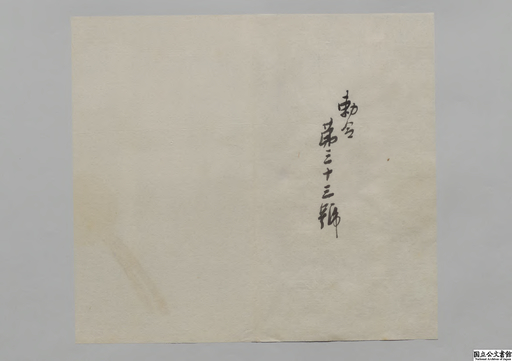 勅令
第三十三號
国立公文書館
National Archives of Japan